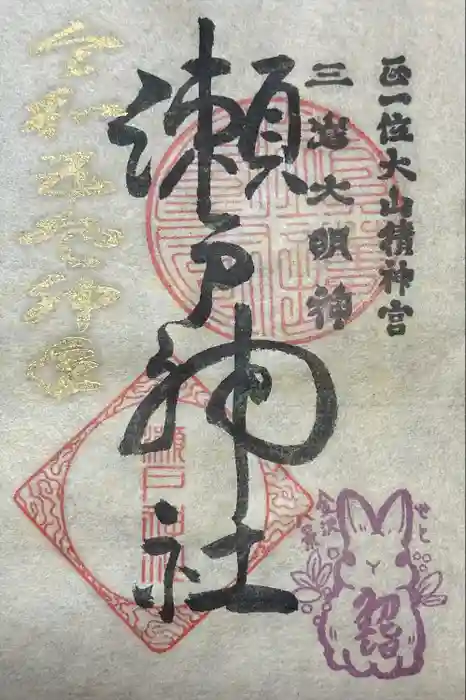 正一位大山積神宮
三嶌大明神
瀬戸神社
瀬戸神社
令和
せと
金沢八景
初詣